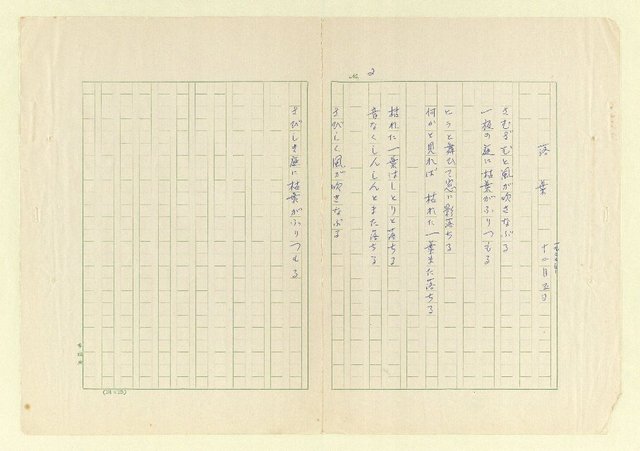 No. 2
落葉
十一月五日
さむざむと風が吹きなぶる
一夜の庭に枯葉がふりつもる
ヒラと舞ひて窓に影落ちる
何かと見れば 枯れた一葉また落ちる
枯れた一葉はしとりと落ちる
音なくしんしんとまた落ちる
さびしく風が吹きなぶる
さびしき庭に枯葉がふりつもる